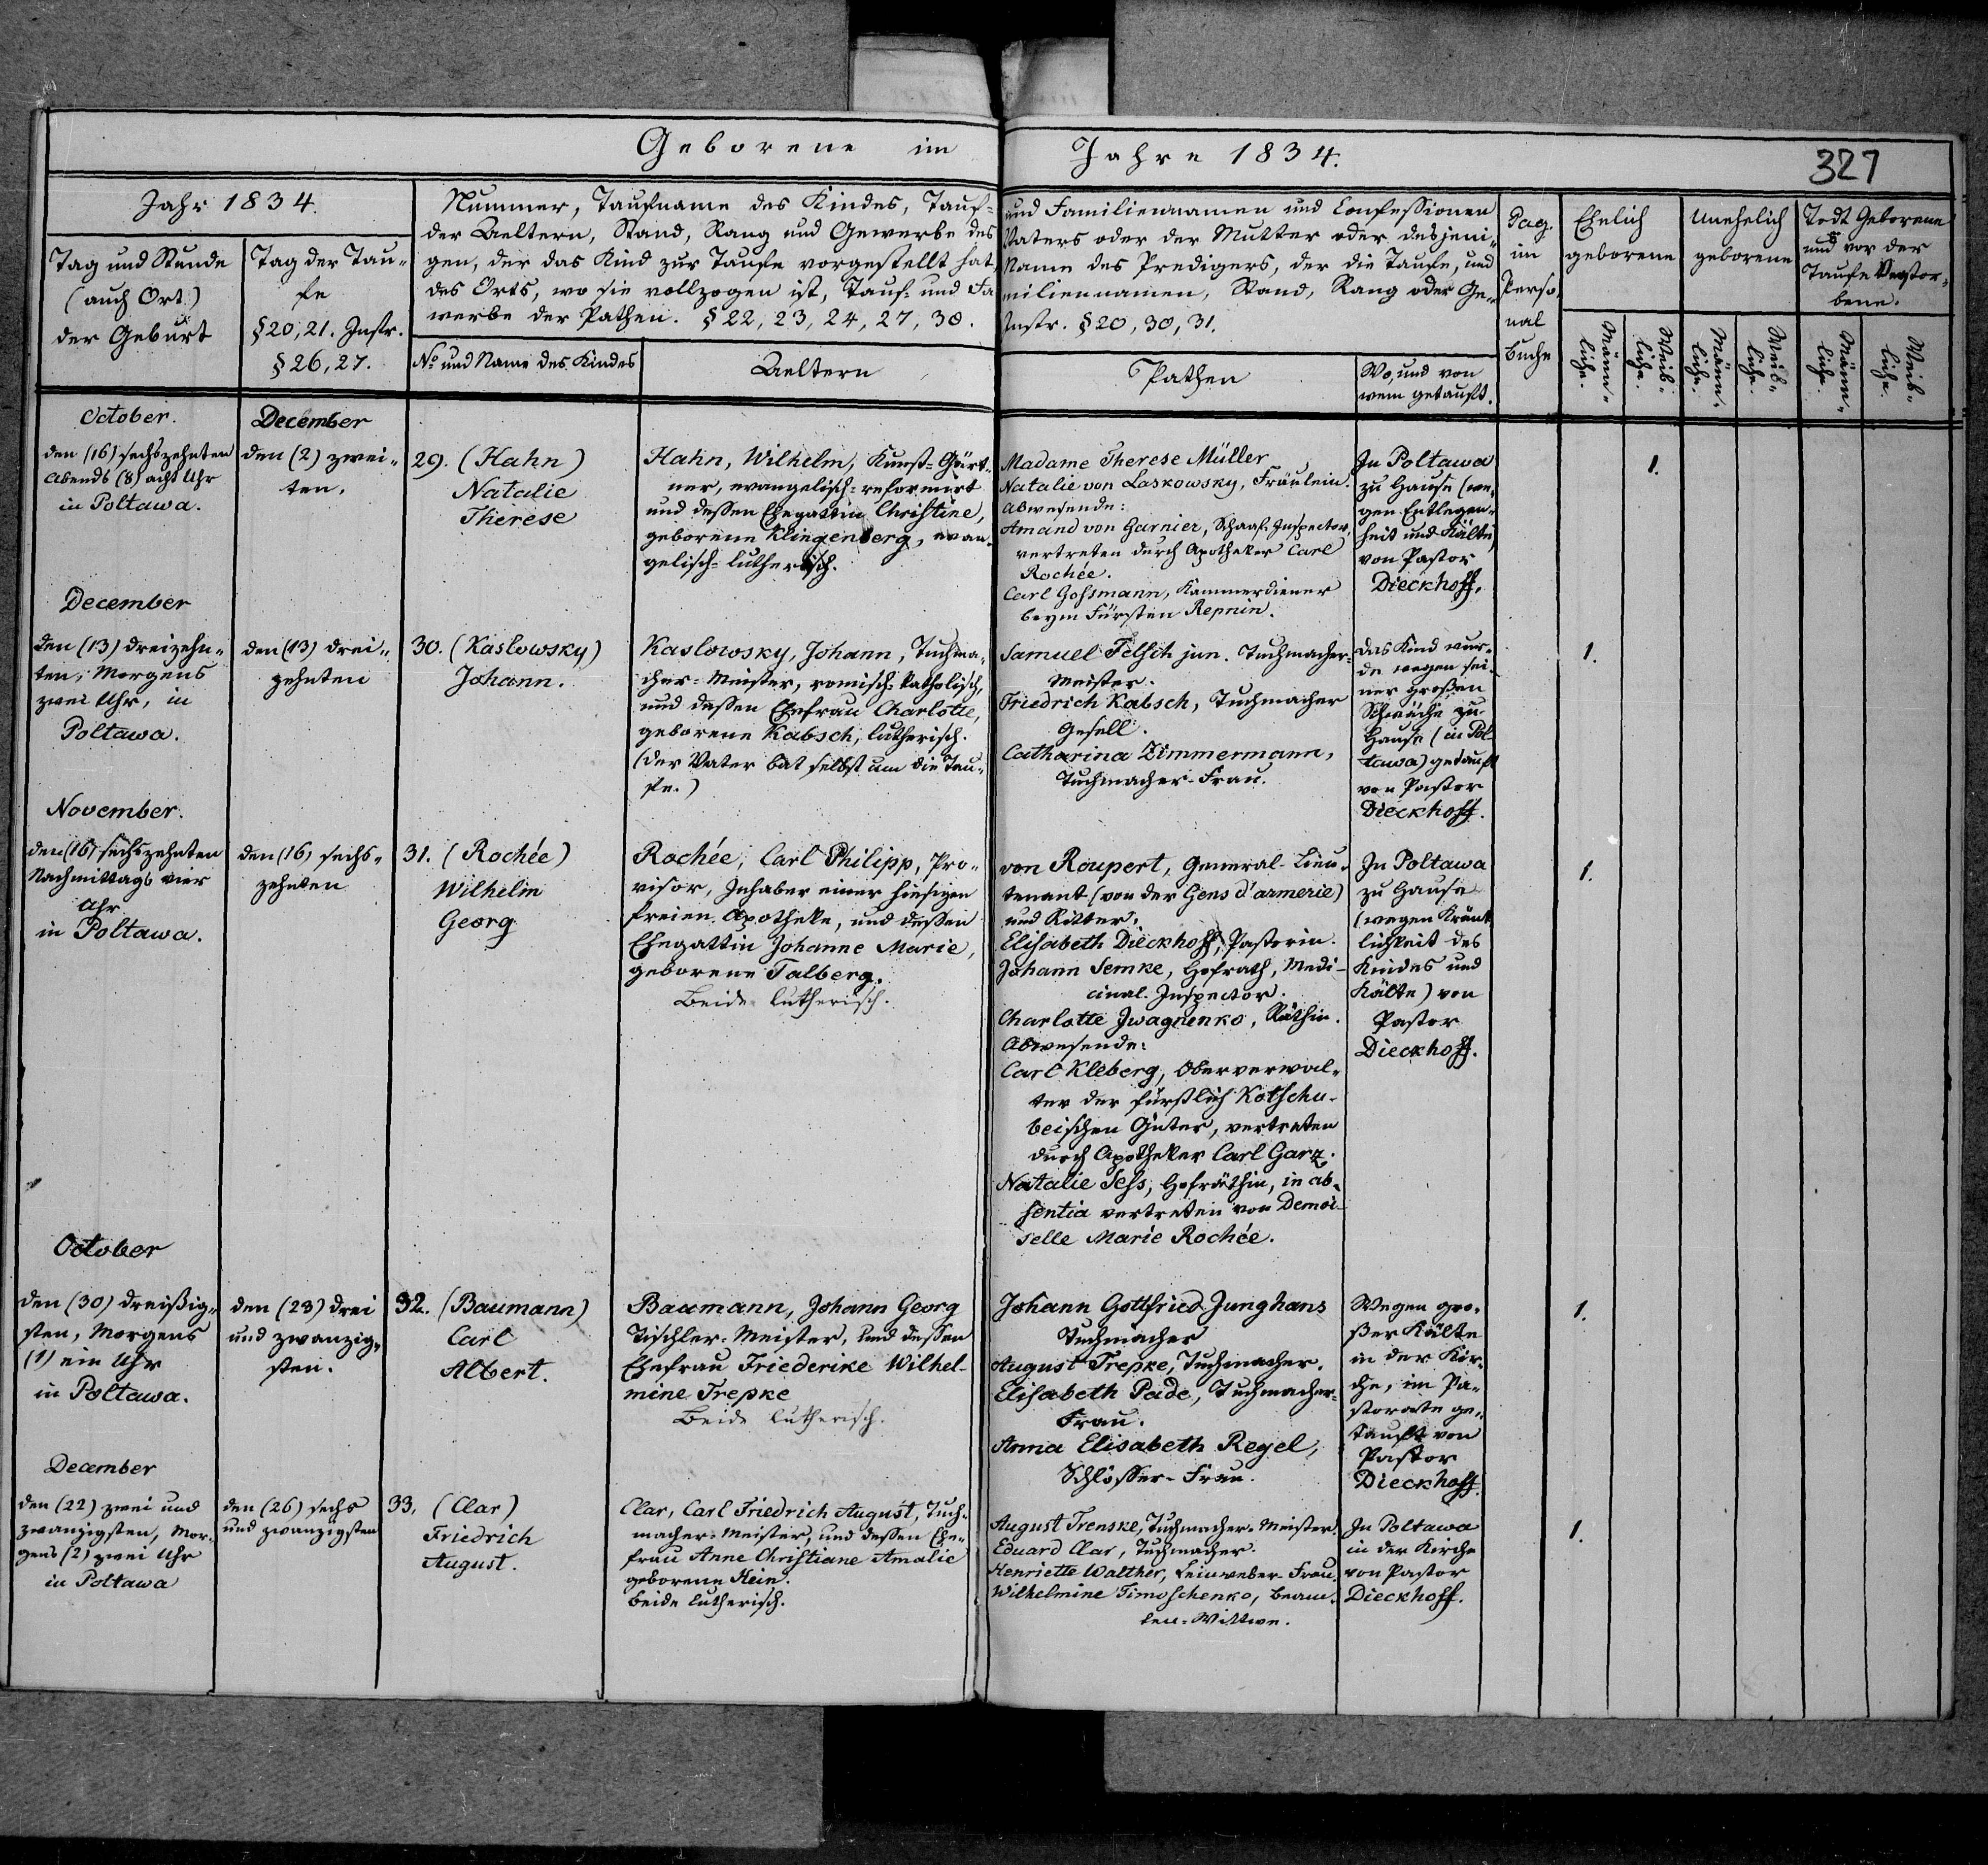 Geborene im Jahre 1834.
327
Jahr 1834.
Tag und Stunde
(auch Ort)
der Geburt
Tag der Tau-
fe
§ 20, 21. Instr.
§ 26, 27.
Nummer, Taufname des Kindes, Tauf-
der Aeltern, Stand, Rang und Gewerbe des
gen, der das Kind zur Taufe vorgestellt hat,
des Orts, wo sie vollzogen ist, Tauf- und Fa
werbe der Pathen. § 22, 23, 24, 27, 30.
No und Name des Kindes
Aeltern
und Familiennamen und Confessionen
Vaters oder der Mutter oder desjeni-
Name des Predigers, der die Taufe, und
miliennamen, Stand, Rang oder Ge-
Instr. § 20, 30, 31.
Pathen
Wo, und von
wem getauft.
Pag.
im
Perso-
nal
buche
Ehelich
geborene
Unehelich
geborene
Todt Geborene
und vor der
Taufe Verstor-
bene.
Männ-
liche.
Weib-
liche.
Männ-
liche.
Weib-
liche.
Männ-
liche.
Weib-
liche.
October.
den (16) sechszehnten
Abends (8) acht Uhr
in Poltawa.
December
den (2) zwei-
ten.
29. (Hahn)
Natalie
Therese
Hahn, Wilhelm, Kunst-Gärt-
ner, evangelisch-reformirt
und dessen Ehegattin Christine,
geborene Klingenberg, evan-
gelisch-lutherisch.
Madame Therese Müller
Natalie von Laskowsky, Fräulein.
Abwesende:
Amand von Garnier, Schaaf-Inspector,
vertreten durch Apotheker Carl
Rochée.
Carl Gossmann, Kammerdiener
beym Fürsten Repnin.
In Poltawa
zu Hause (we-
gen Entlegen-
heit und Kälte)
von Pastor
Dieckhoff.
1.
December
den (13) dreizehn-
ten, Morgens
zwei Uhr, in
Poltawa.
den (13) drei-
zehnten
30. (Kaslowsky)
Johann.
Kaslowsky, Johann, Tuchma-
cher-Meister, romisch-katholisch,
und dessen Ehefrau Charlotte,
geborene Kabsch, lutherisch.
(der Vater bat selbst um die Tau-
fe.)
Samuel Felsch jun. Tuchmacher-
Meister.
Friedrich Kabsch, Tuchmacher
Gesell.
Catharina Zimmermann,
Tuchmacher-Frau.
das Kind wur-
de wegen sei-
ner großen
Schwäche zu
Hause (in Pol
tawa) getauft
von Pastor
Dieckhoff.
1.
November.
den (16) sechszehnten
Nachmittags vier
Uhr
in Poltawa.
den (16) sechs-
zehnten
31. (Rochée)
Wilhelm
Georg
Rochée, Carl Philipp, Pro-
visor, Inhaber einer hiesigen
freien Apotheke, und dessen
Ehegattin Johanne Marie,
geborene Talberg.
Beide lutherisch.
von Roupert, General-Lieu-
tenant (von der Gens d'armerie)
und Ritter.
Elisabeth Dieckhoff, Pastorin.
Johann Semke, Hofrath, Medi-
cinal-Inspector.
Charlotte Jwagnenko, Räthin.
Abwesende:
Carl Kleberg, Oberverwal-
ter der fürstlich Kotschu-
beischen Güter, vertreten
durch Apotheker Carl Garz.
Natalie Sess, Hofräthin, in ab-
sentia vertreten von Demoi-
selle Marie Rochée.
In Poltawa
zu Hause
(wegen Kränk
lichkeit des
Kindes und
Kälte) von
Pastor
Dieckhoff.
1.
October
den (30) dreißig-
sten, Morgens
(1) ein Uhr
in Poltawa.
den (23) drei
und zwanzig-
sten.
32. (Baumann)
Carl
Albert.
Baumann, Johann Georg
Tischler-Meister, und dessen
Ehefrau Friederike Wilhel-
mine Trepke
Beide lutherisch.
Johann Gottfried Junghans
Tuchmacher
August Trepke, Tuchmacher.
Elisabeth Pade, Tuchmacher-
Frau.
Anna Elisabeth Regel,
Schlosser-Frau.
Wegen gro-
ßer Kälte
in der Kir-
che, im Pa-
storate ge-
tauft von
Pastor
Dieckhoff.
1.
December
den (22) zwei und
zwanzigsten, Mor-
gens (2) zwei Uhr
in Poltawa
den (26) sechs
und zwanzigsten
33. (Clar)
Friedrich
August.
Clar, Carl Friedrich August, Tuch-
macher-Meister, und dessen Ehe-
frau Anne Christiane Amalie
geborene Hein.
beide lutherisch.
August Trenske, Tuchmacher-Meister.
Eduard Clar, Tuchmacher.
Henriette Walther, Leinweber-Frau.
Wilhelmine Timoschenko, Beam-
ten-Wittwe.
In Poltawa
in der Kirche
von Pastor
Dieckhoff.
1.